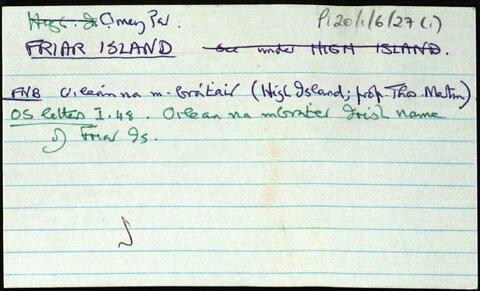 High. Is Omey Par. P120/1/6/27 (1)
FRIAR ISLAND See under HIGH ISLAND.
FNB Oileán na m-bráthair (High Island; prop. Thos Martin)
OS letters I.48. Oilean na mbráter Irish name
of Friar Is.